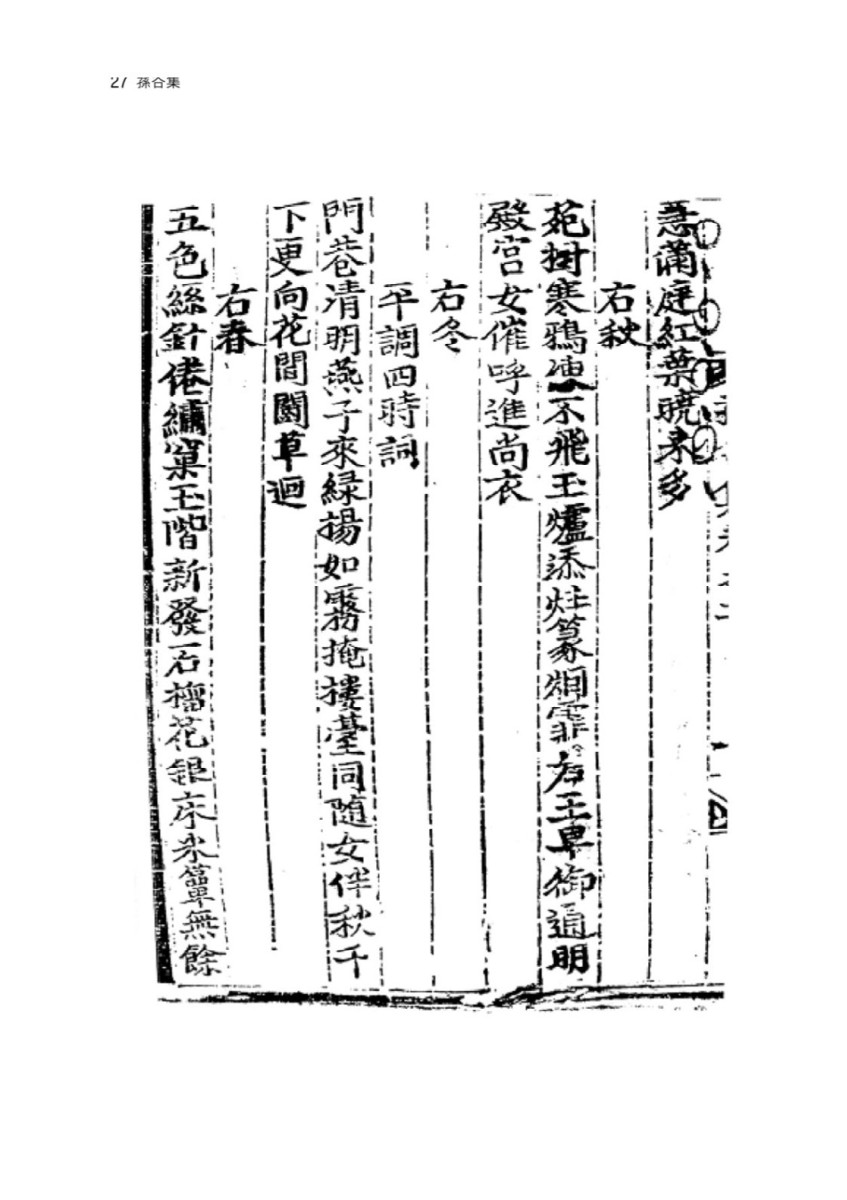 27 孫合集
急滿庭紅葉曉来多
右秋
苑樹寒鴉凍不飛玉爐添炷篆烟霏君王早御通明
殿宮女催呼進尚衣
右冬
平調四時詞
門巷清明燕子來緑揚如霧掩摟臺同随女伴秋千
下更向花間鬪草迴
右春
五色絲針倦繡窠玉階新發石榴花銀床氷簟無餘